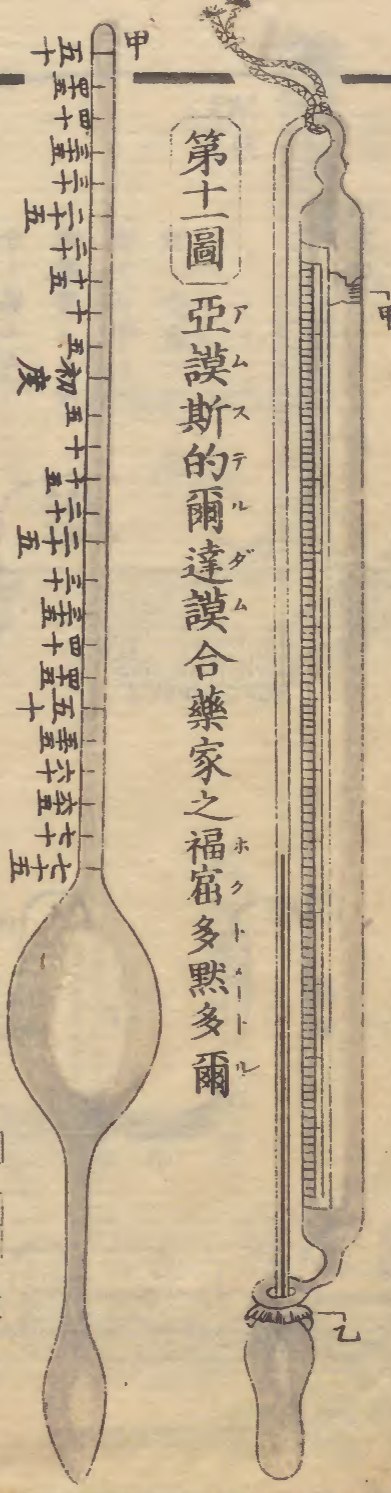 甲
乙
第十一圖
亞謨斯的爾達謨合藥家之福窟多默多爾
アムステルダム
ホクトメートル
甲
五十
四十五
四十
三十五
三十
二十五
二十
十五
十
五
初度
五
十
十五
二十
二十五
三十
三十五
四十
四十五
五十
五十五
六十
六十五
七十
七十五